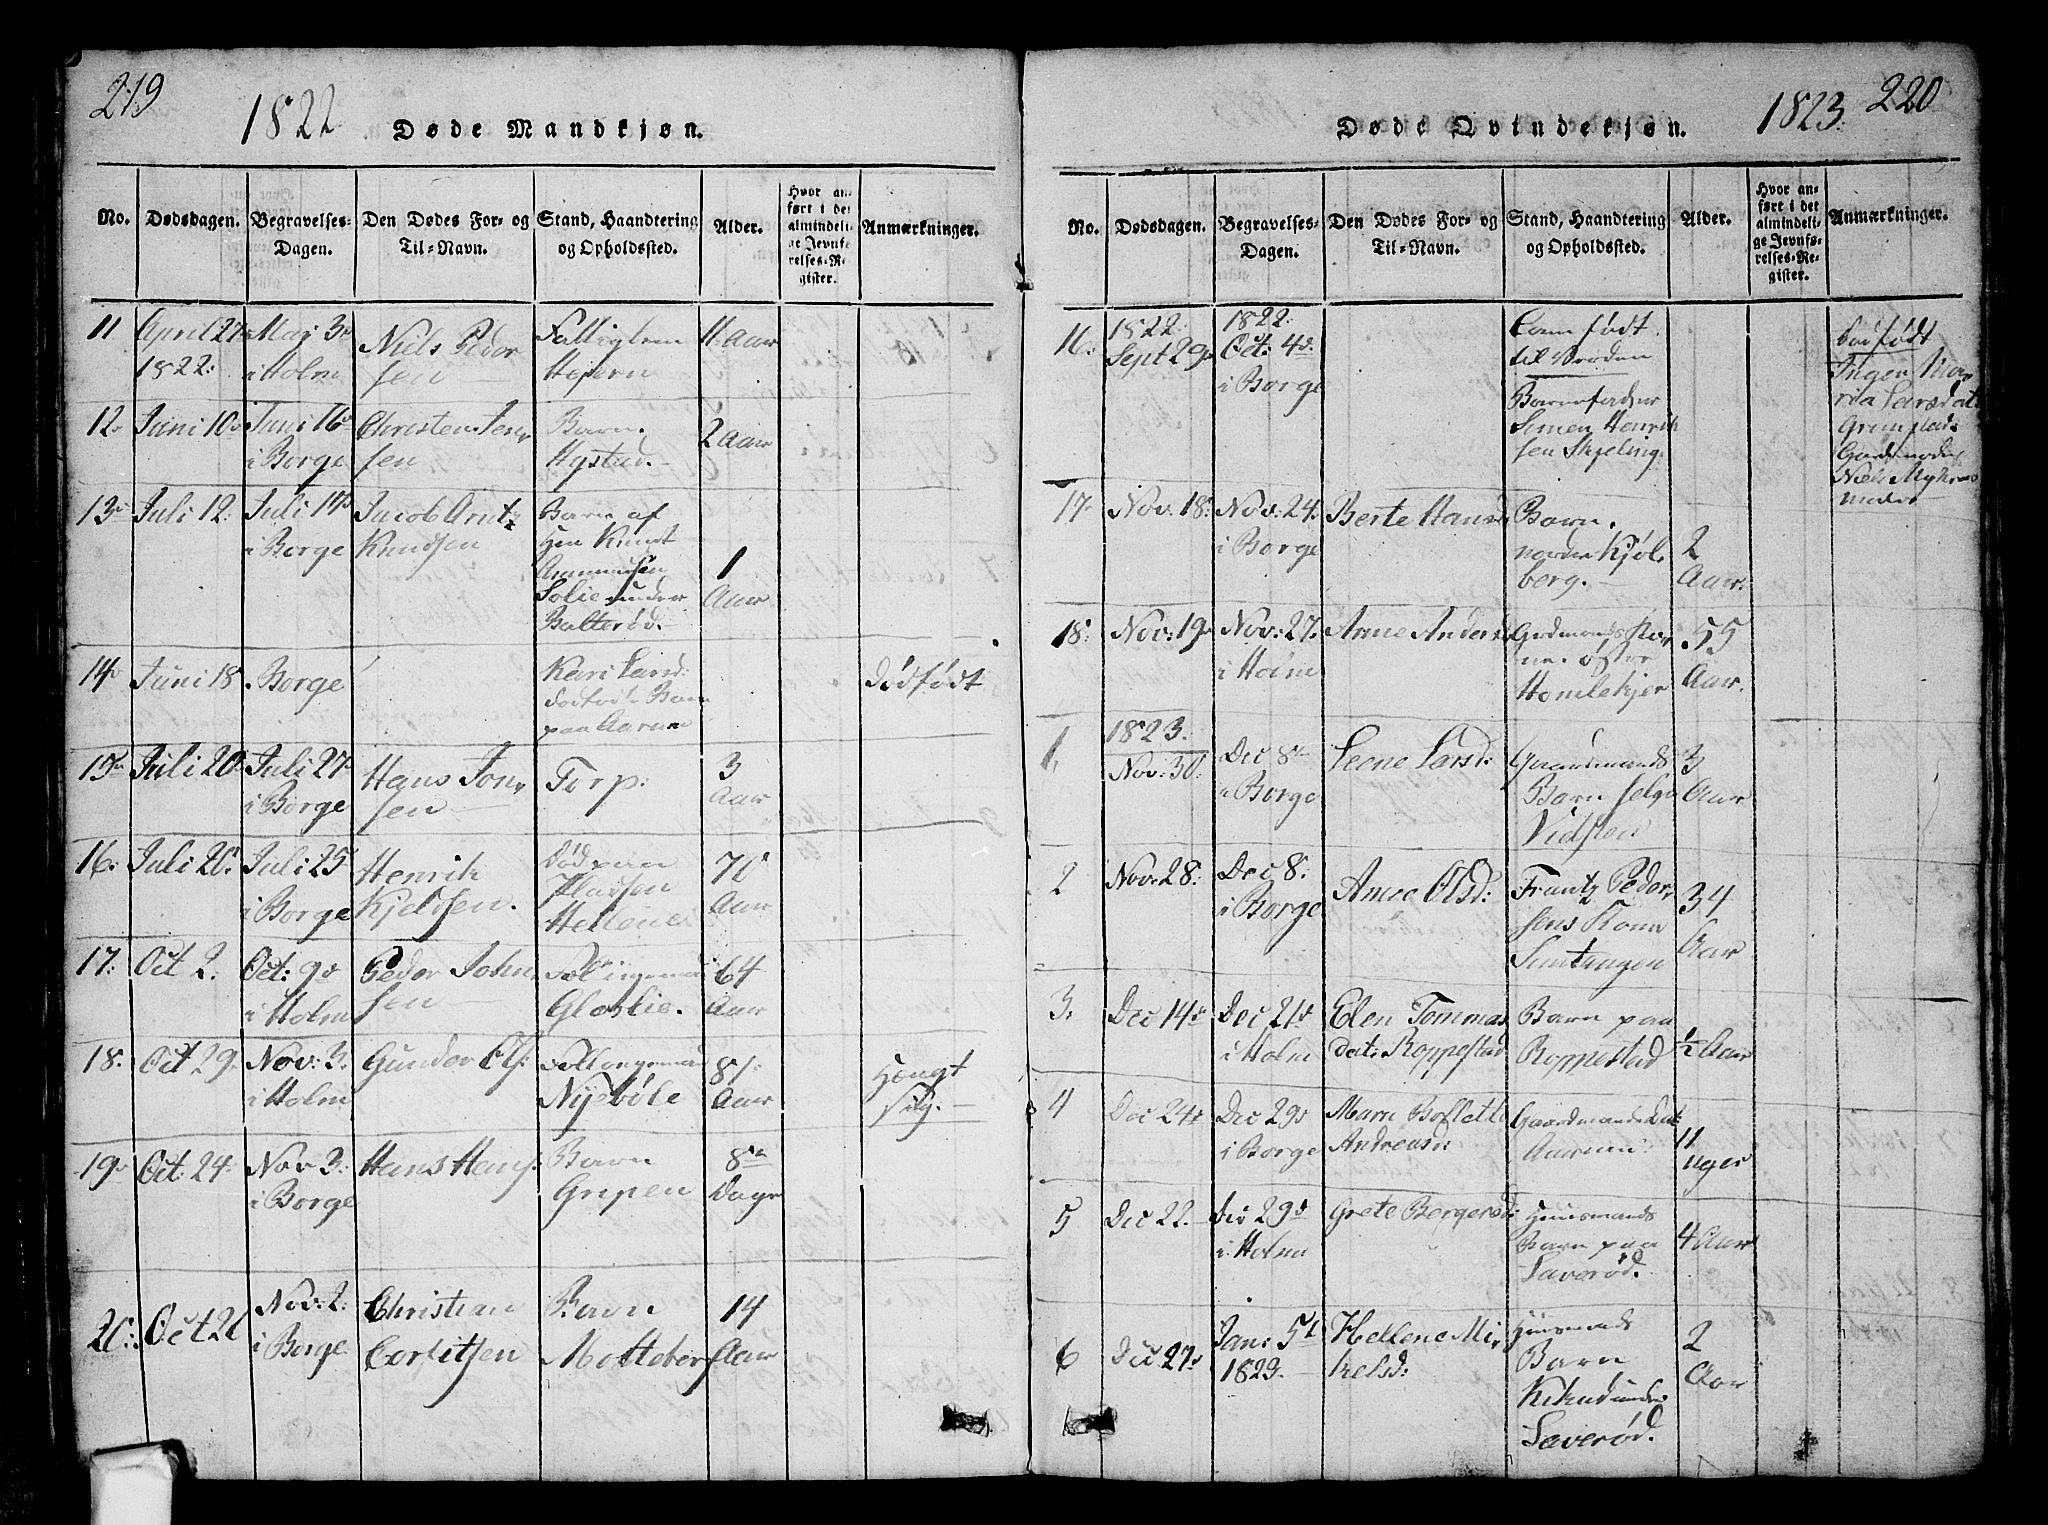 219
1822
Døde Mandkjøn.
No.
Dødsdagen.
Begravelses-
Dagen.
Den Dødes For- og
Til-Navn.
Stand, Haandtering
og Opholdssted.
Alder.
Hvor an-
ført i det
almindeli-
ge Jevnfø-
relses-Re-
gister.
Anmærkninger.
11 April 27 Maj 3
1822: i Holm
Niels Peder
sen
Hejern
11 Aar
12 Juni 10 Juni 16
i Borge
Christen Jen
sen
Barn.
Hystad.
2 Aar
13 Juli 12. Juli 17
i Borge
Jacob
Knudsen
Barn af
Knut
Solie under
Balterød.
1
Aar
14 Juni 18 Borge
Kari Larsd:
paa
Dødfødt
15 Juli 20 Juli 27
i Borge
Hans Jon
sen
Torp:
3
Aar
16. Juli 20. Juli 25
i Borge
Henrik
Kjelsen.
Død paa
Pladsen
Hellene
70
Aar
17: Oct 2. Oct: 9d
i Holm
Peder John
sen
Gloslie.
64
Aar
18. Oct 29. Nov: 3.
i Holm
Gunder
Nyebøle
81:
Aar
Hengt
sig.
19 Oct: 24 Nov 3:
i Borge
Hans Hans:
Barn
Gripen
8
Dage
20: Oct 26
Nov: 2:
i Borge
Christian
Corfitsen
Barn
14
Aar
Døde Qvindekjøn.
1823:
220
No.
Dødsdagen.
Begravelses-
Dagen.
Den Dødes For- og
Til-Navn.
Stand, Haandtering
og Opholdssted.
Alder.
Hvor an-
ført i det
almindeli-
ge Jevnfø-
relses-Re-
gister.
Anmærkninger.
16: 1822:
Sept 29
1822:
Oct: 4d.
i Borge
født
til Verden
Barnefader
Simen Henrik
sen Skjeling
Inger Ma
ria Larsdat
17 Nov: 18: Nov: 24.
i Borge
Berte Hans
Barn.
nordre Kjøl
berg.
2
Aar:
18: Nov: 19 Nov: 27.
i Holm
Anne Anders
østre
55
Aar.
1. 1823.
Nov: 30:
Dec 8
i Borge
Leene Larsd:
Gaardmands
Barn
Vidsten
3
Aar
2 Nov: 28. Dec 8.
i Borge
Anne Olsd:
Frantz Peder
sens Kone
34
Aar
3. Dec 14 Dec 21
i Holm
Elen Tommas
dat: Roppestad
Barn paa
Roppestad
1/2 Aar
4 Dec 24 Dec 29
i Borge
Andreasd:
Gaardmands
11
uger
5 Dec 22. Dec 29
i Holm
Grete Borgersd:
Huusmands
Barn paa
Saverød.
4 Aar
6 Dec 27
Jan: 5
1823.
Hellene Mi
kelsd:
Huusmands
Barn
Saverød.
2
Aar